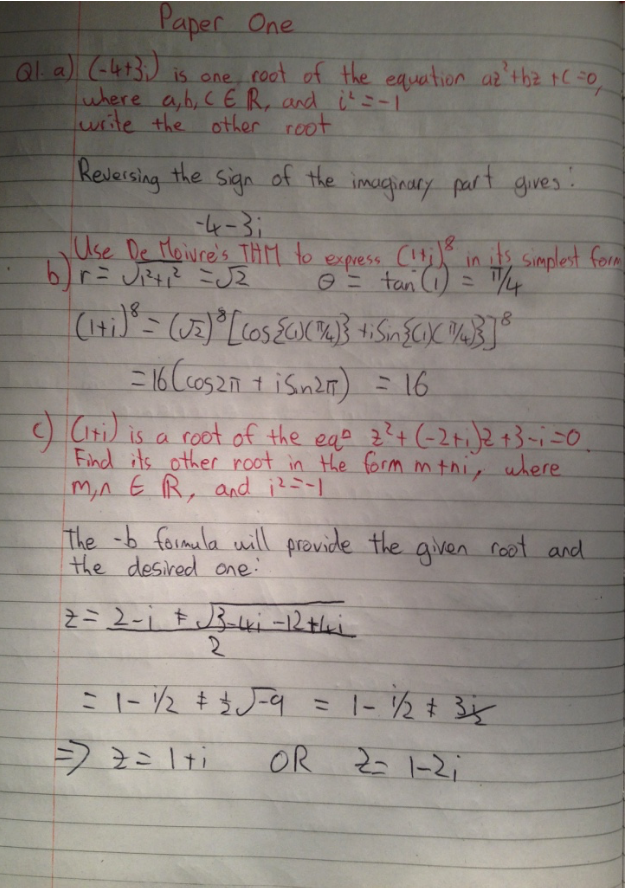 Paper One
Q1. a) (-4+3i) is one root of the equation az²+bz+c=0,
where a,b,c ∈ ℝ, and i²=-1
write the other root
Reversing the sign of the imaginary part gives:
-4-3i
Use De Moivre's THM to express (1+i)⁸ in its simplest form
b) r = √1²+1² = √2 θ = tan⁻(1) = π/4
(1+i)⁸ = (√2)⁸[cos{(1)(π/4)} + iSin{(1)(π/4)}]⁸
= 16(cos2π + iSin2π) = 16
c) (1+i) is a root of the eqⁿ z²+(-2+i)z+3-i=0.
Find its other root in the form m+ni, where
m,n ∈ ℝ, and i²=-1
The -b formula will provide the given root and
the desired one:
z = 2-i ± √3-4i-12+4i
2
= 1- i/2 ± ½√-9 = 1- i/2 ± 3i/2
⇒ z = 1+i OR z = 1-2i